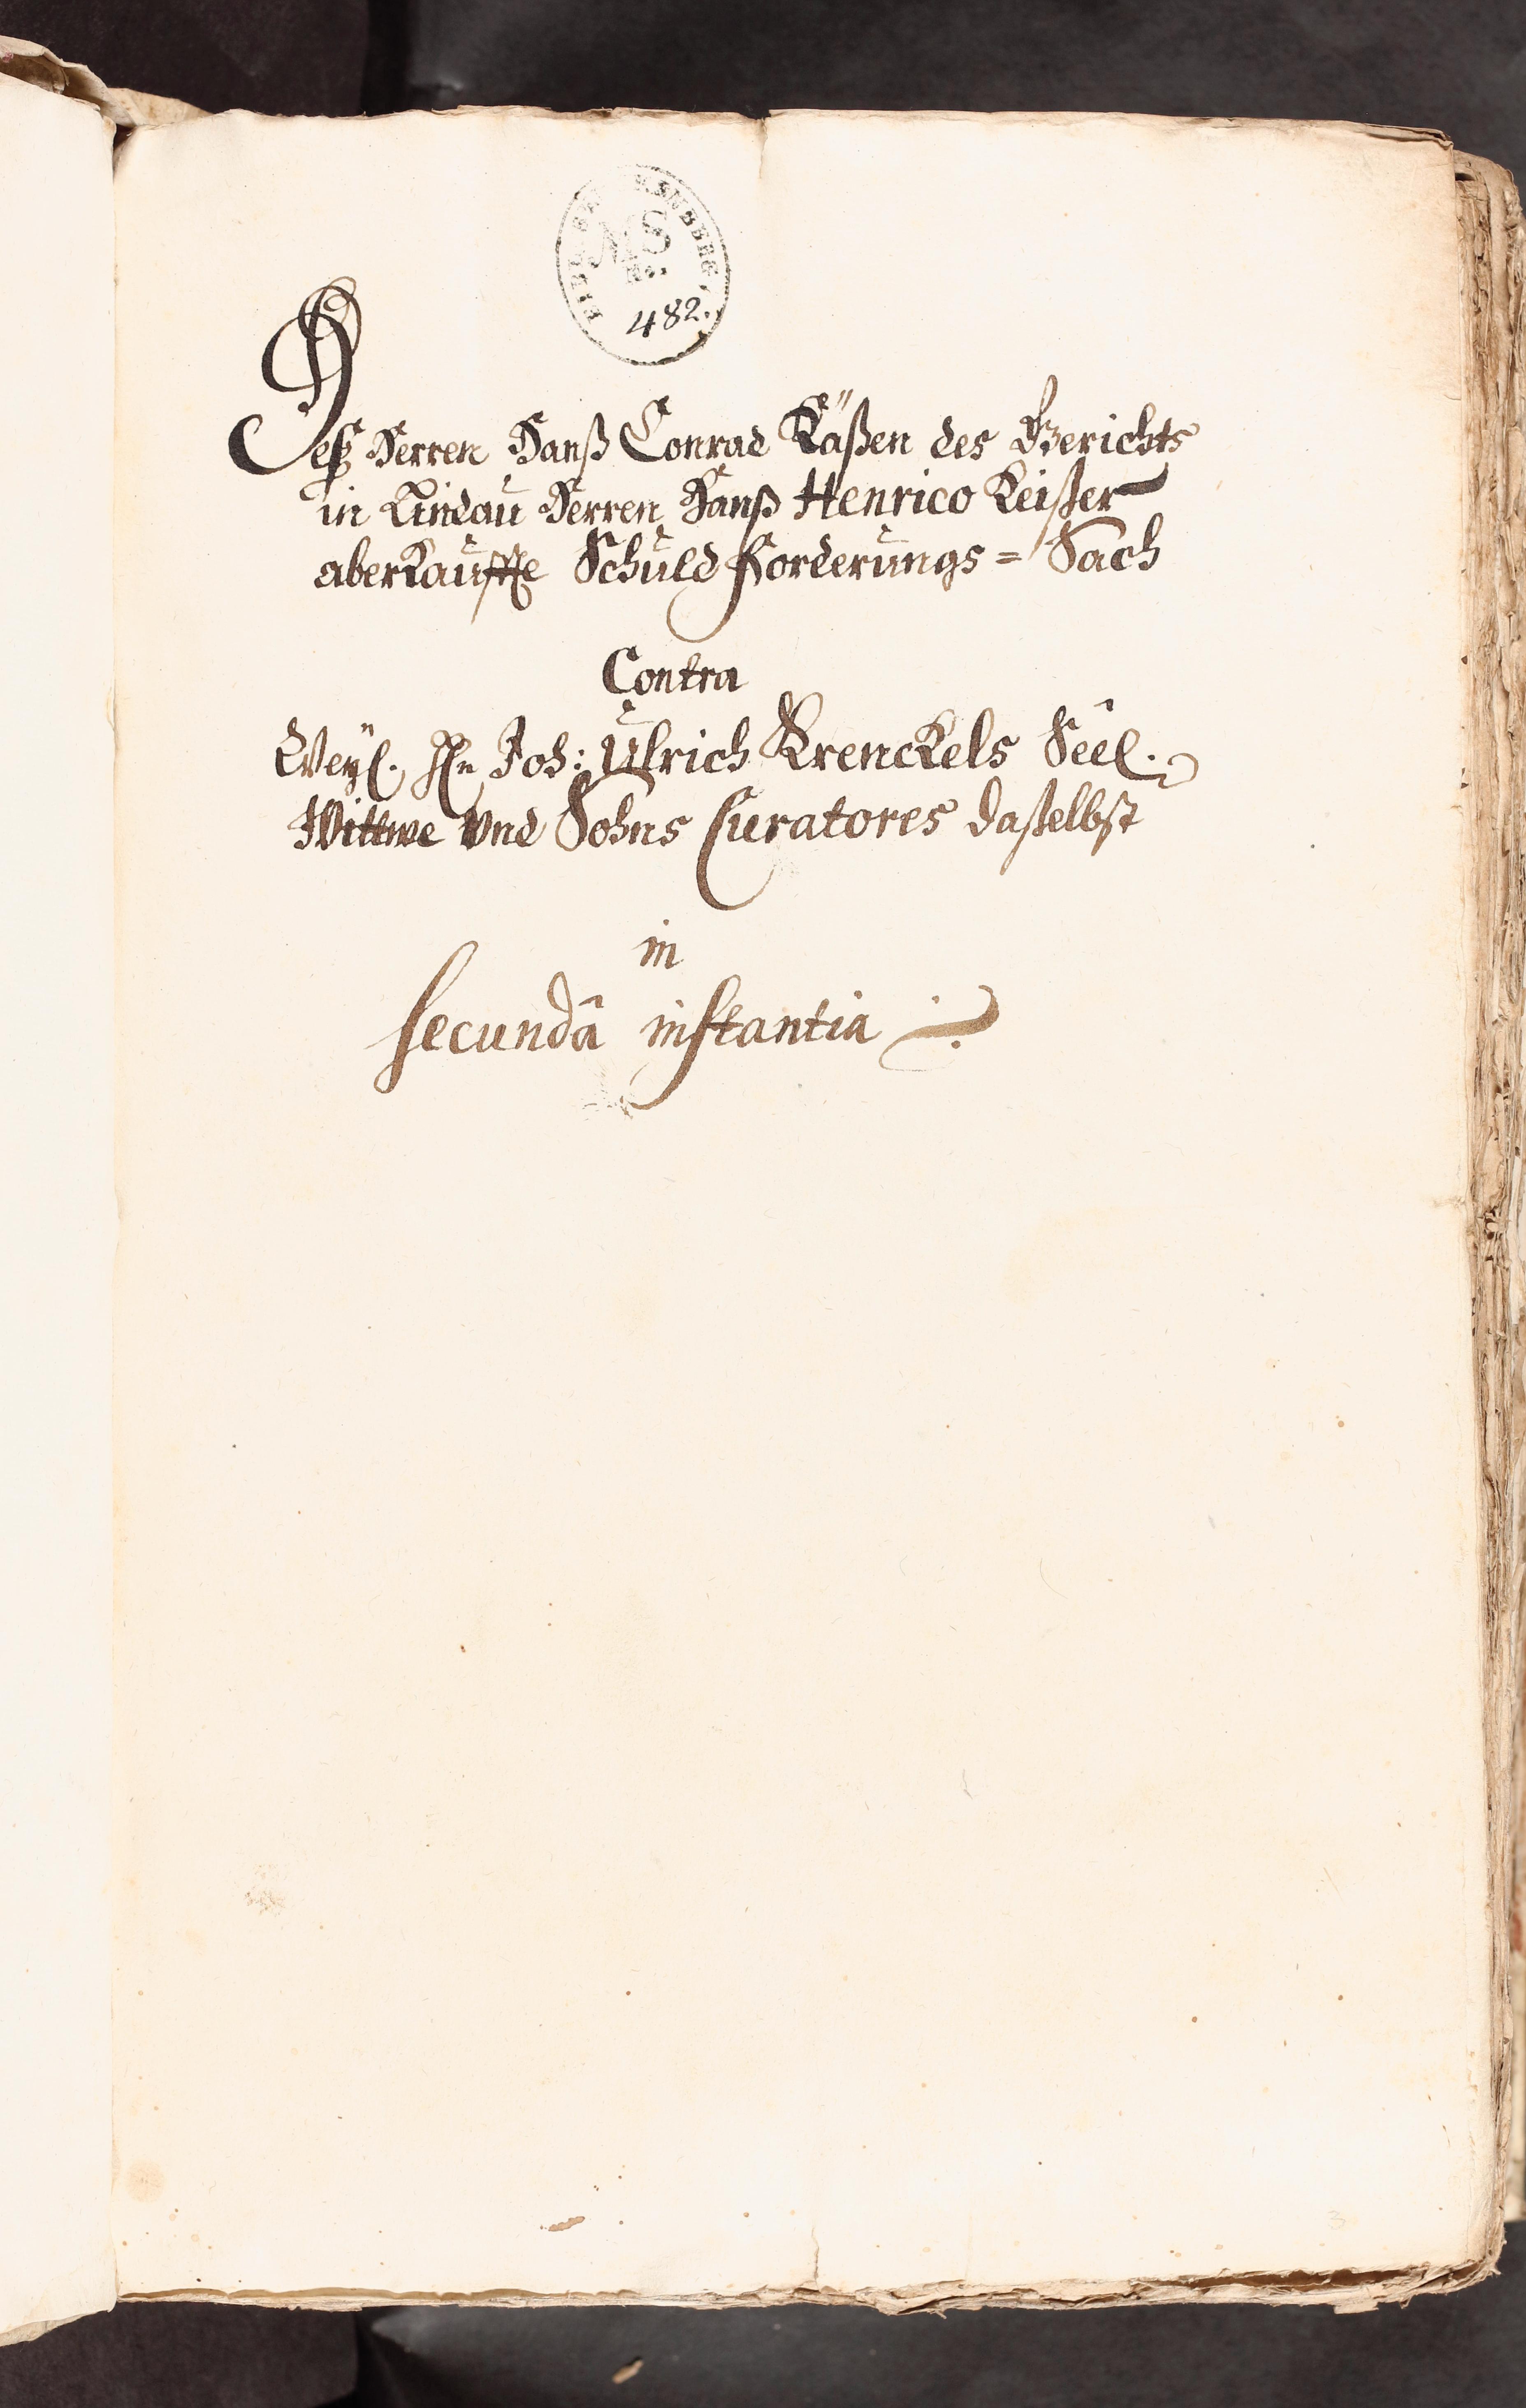 MS
No.
482.
Deß Herren Hanß Conrad Käßen des Gerichts
in Lindau Herren Hanß Henrico Keißer
aberkauffte Schuld Forderungs = Sach
Contra
Weyl. Hn Joh: Ulrich Krenckels Seel.
Wittwe Vnd Sohns Curatores daßelbst
in
secundâ instantia
3